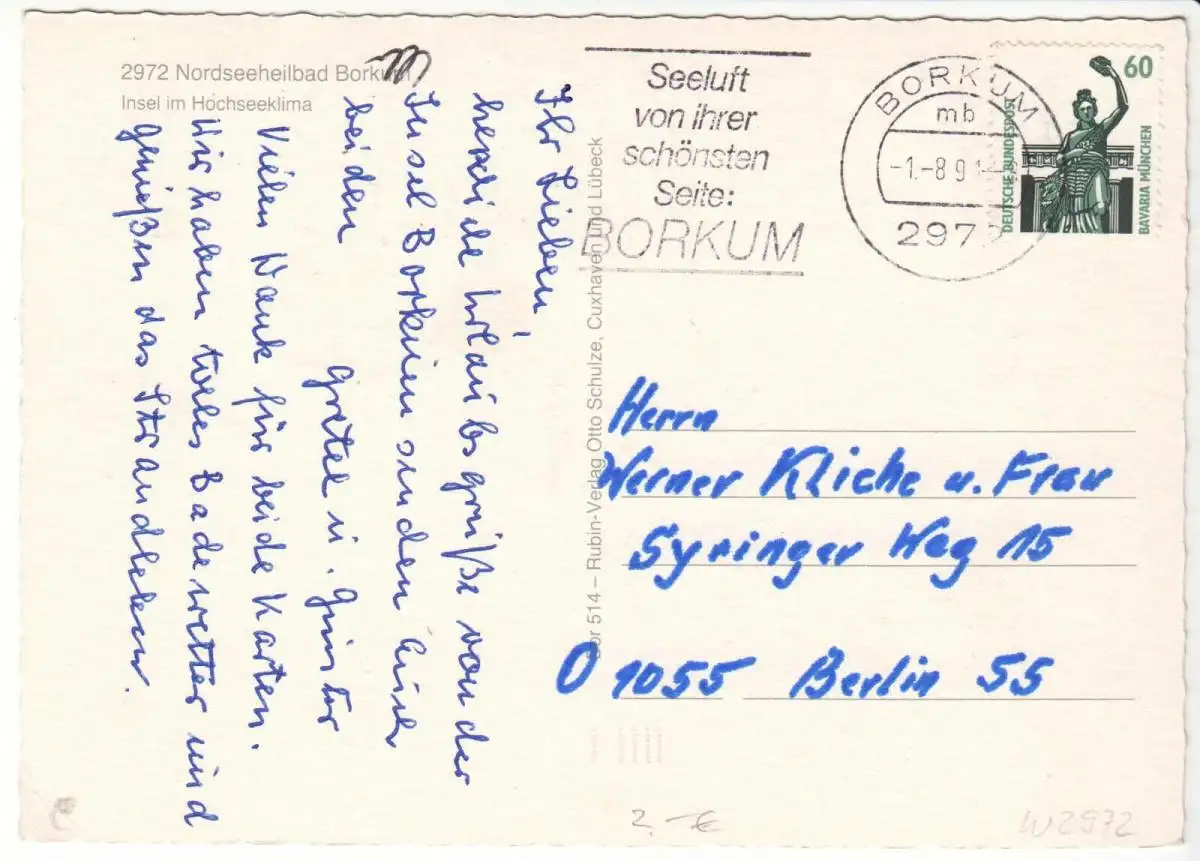 2972 Nordseeheilbad Borkum
Insel im Hochseeklima
Ihr Lieben,
herzliche Urlaubsgrüße von der
Insel Borkum senden Euch
beiden
Gretel u. Günter
Vielen Dank für beide Karten.
Wir haben tolles Badewetter und
genießen das Strandleben.
Bor 514 – Rubin-Verlag Otto Schulze, Cuxhaven und Lübeck
Seeluft
von ihrer
schönsten
Seite:
BORKUM
BORKUM
mb
-1.-8.9
297
60
DEUTSCHE BUNDESPOST
BAVARIA MÜNCHEN
Herrn
Werner Kliche u. Frau
Syringer Weg 15
O 1055 Berlin 55
2.-€
W2972